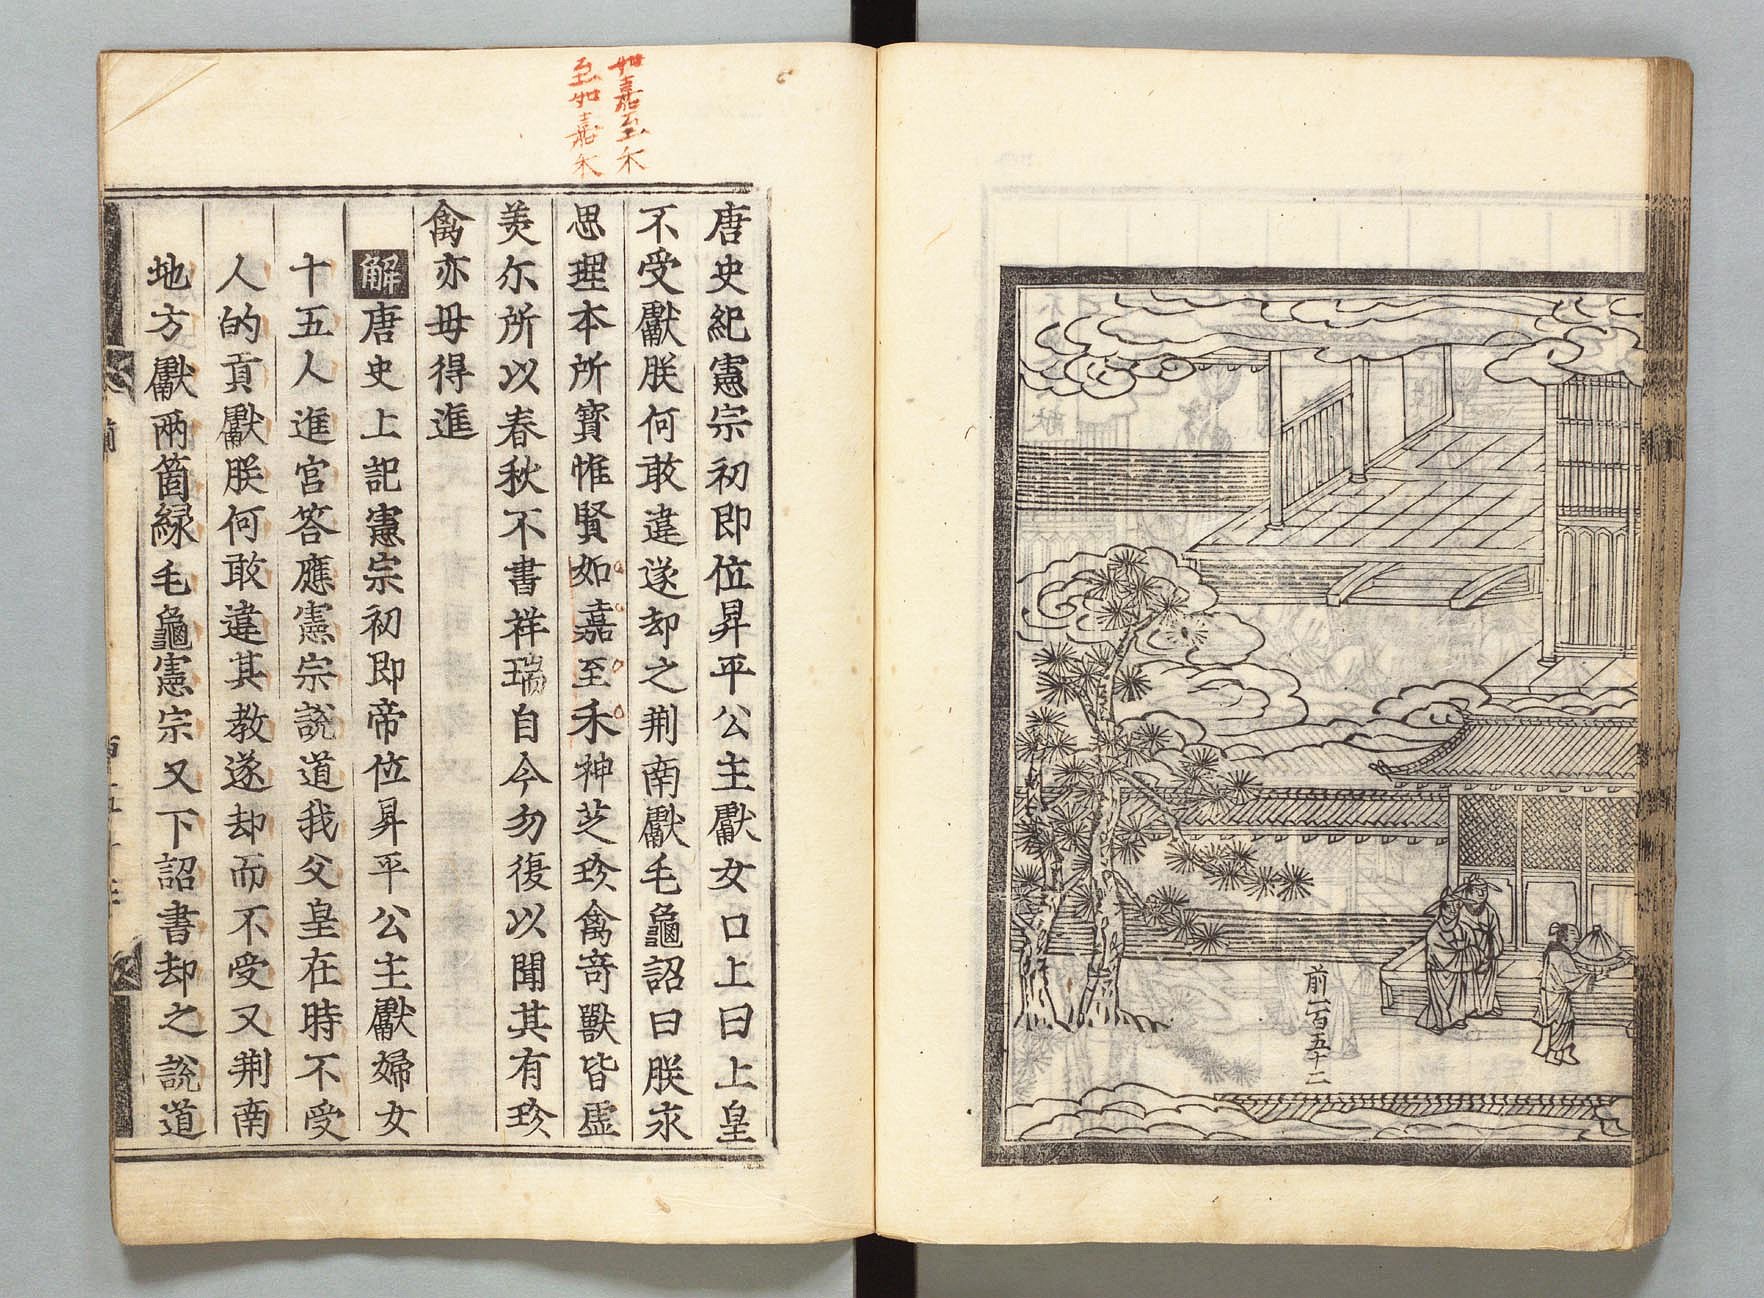 前一百五十二
如嘉至禾
至如嘉禾
唐史紀憲宗初即位昇平公主獻女口上曰上皇
不受獻朕何敢違遂却之荆南獻毛龜詔曰朕永
思理本所寶惟賢如嘉至禾神芝珍禽奇獸皆虛
美尓所以春秋不書祥瑞自今勿復以聞其有珍
禽亦毋得進
解唐史上記憲宗初即帝位昇平公主獻婦女
十五人進宮答應憲宗說道我父皇在時不受
人的貢獻朕何敢違其教遂却而不受又荆南
地方獻兩箇緑毛龜憲宗又下詔書却之說道